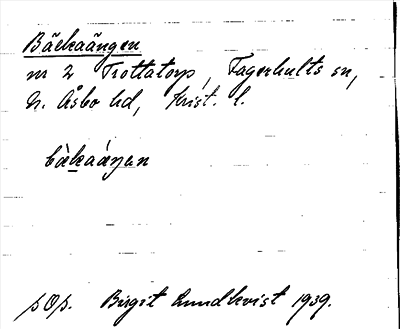 Bäckaängen
nr 2 Trottatorp, Fagerhults sn,
N. Åsbo hd, Krist. l.
bä̀kaáŋən
pOp. Birgit Lundkvist 1939.